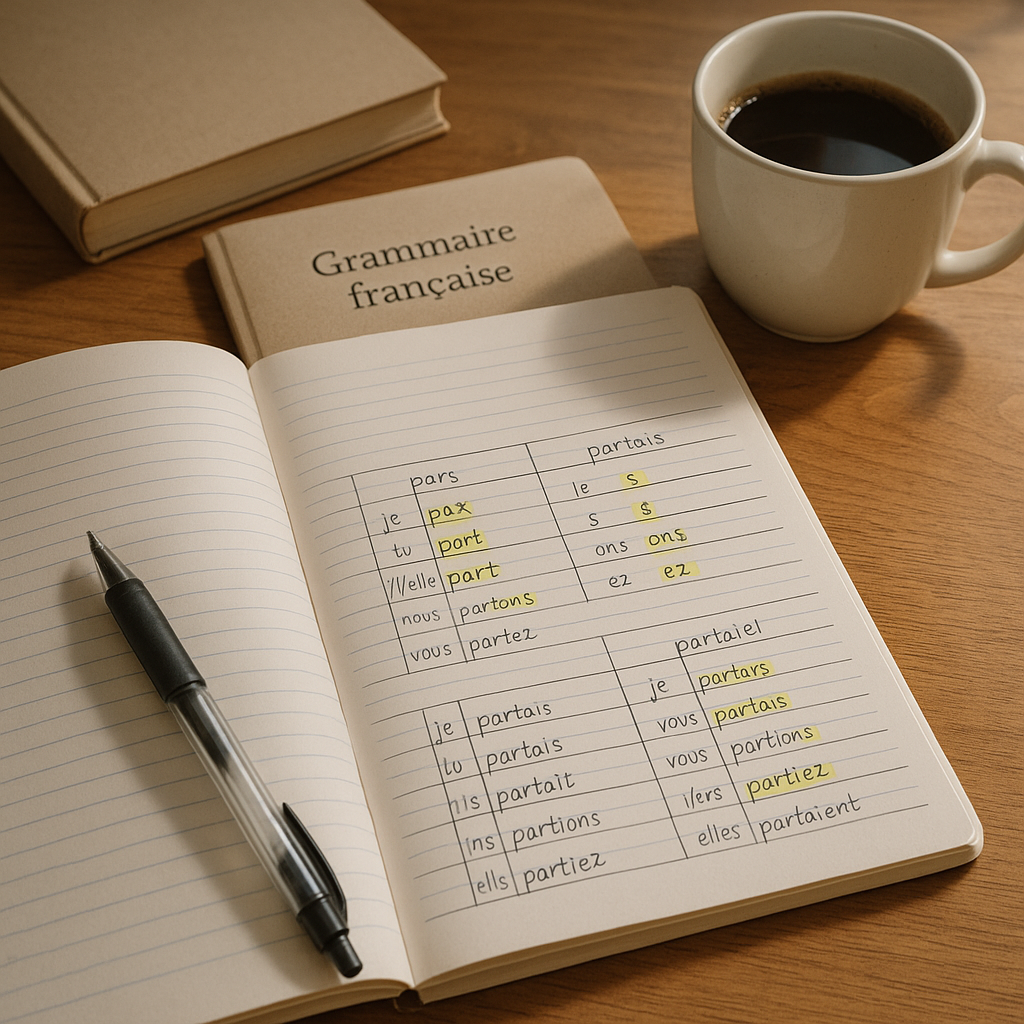 Grammaire
française
pars
je pax
tu part
il/elle part
nous partons
vous partez
partais
le s
s $
ons ons
ez ez
je partais
tu partais
partait
ins partions
ells partiez
partaiel
je partars
vous partais
vous partions
i/ers partiez
elles partaient